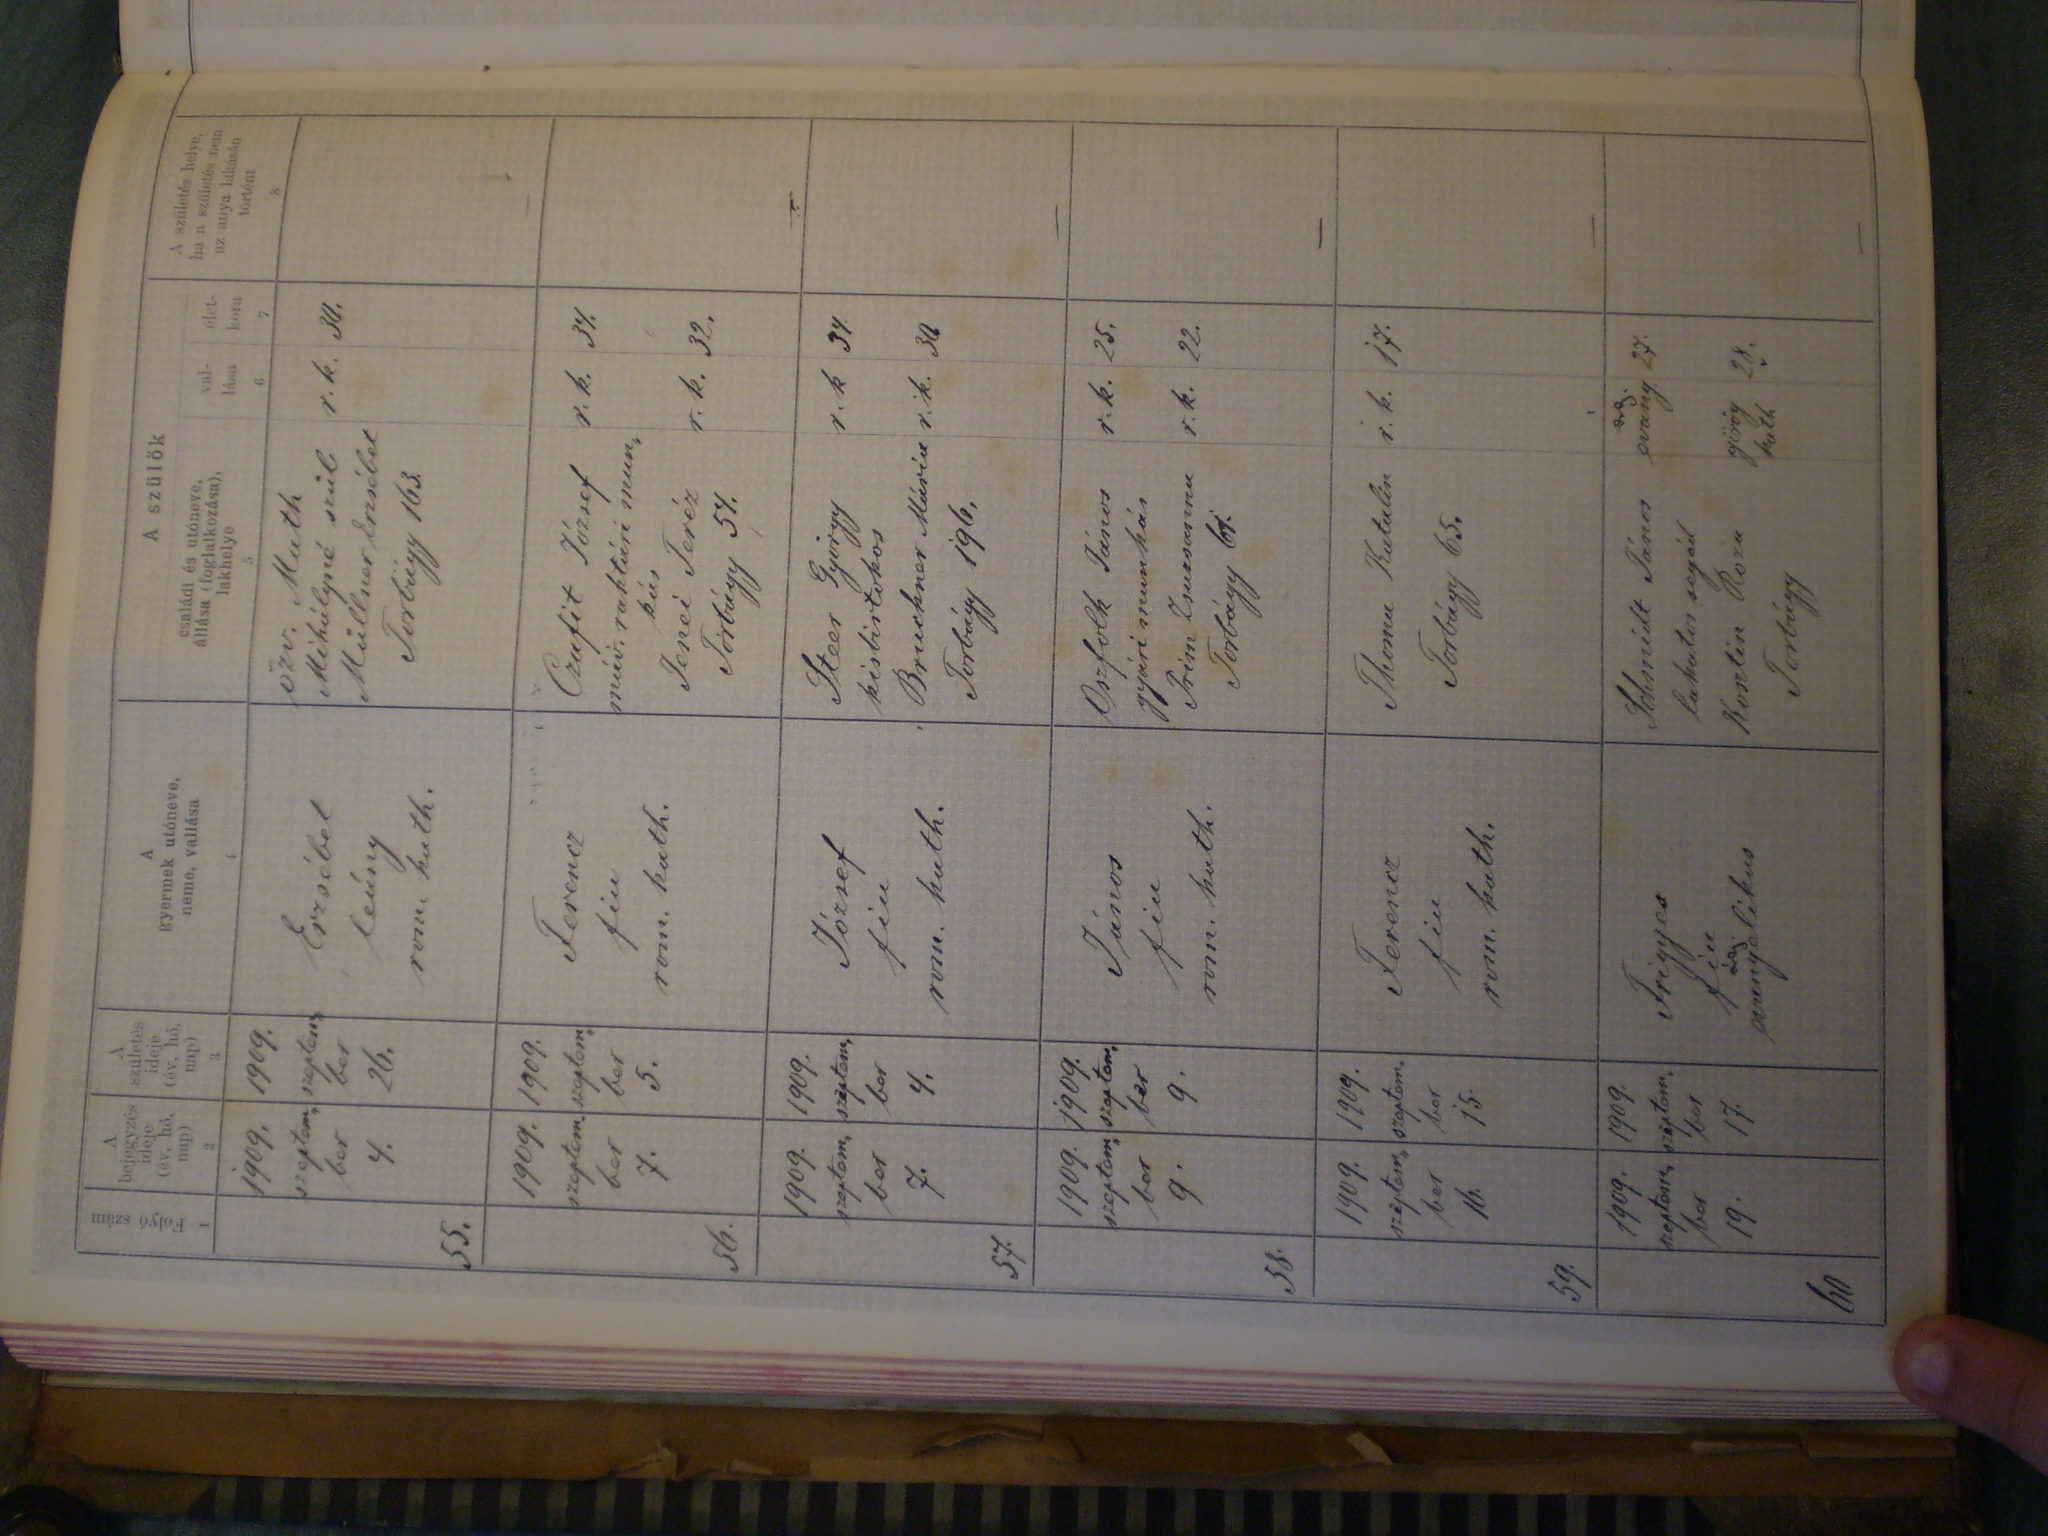 1
Folyó szám
2
A bejegyzés ideje (év, hó, nap)
3
A születés ideje (év, hó, nap)
4
A gyermek utóneve, neme, vallása
A szülők
5
családi és utóneve, állása (foglalkozása), lakhelye
6
vallása
7
életkora
8
A születés helye, ha a születés nem az anya lakásán történt
55.
1909.
szeptem,
ber
4.
1909.
szeptem,
ber
26.
Erzsébet
leány
rom. kath.
özv. Muth
Mihályné szül
Müllner Erzsébet
Torbágy 163.
r. k.
30.
56.
1909.
szeptem,
ber
7.
1909.
szeptem,
ber
5.
Ferencz
fiu
rom. kath.
Czafit József
máv. raktári mun,
kás
Jenei Teréz
Torbágy 57.
r. k.
37.
r. k.
32.
57.
1909.
szeptem,
ber
7.
1909.
szeptem,
ber
4.
József
fiu
rom. kath.
Steer György
kisbirtokos
Bruckner Mária
Torbágy 196.
r. k
r. k.
58.
1909.
szeptem,
ber
9.
1909.
szeptem,
ber
9.
János
fiu
rom. kath.
Oszfolk János
gyári munkás
Prim Zsuzsanna
Torbágy
r. k.
25.
r. k.
22.
59.
1909.
szeptem,
ber
16.
1909.
szeptem.
ber
15.
Ferencz
fiu
rom. kath.
Thoma Katalin
Torbágy 65.
r. k.
17.
60
1909.
szeptem,
ber
19.
1909.
szeptem,
ber
17.
Frigyes
fiu
ág
evangelikus
Schmidt János
lakatos segéd
Kosztin Róza
Torbágy
ág
evang.
27.
görög
kath.
28.